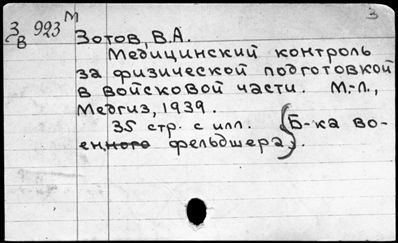 3
З/В 923 М
Зотов, В.А.
Медицинский контроль
за физической подготовкой
в войсковой части. М.-Л.,
Медгиз, 1939.
35 стр. с илл. (Б-ка во-
енного фельдшера).